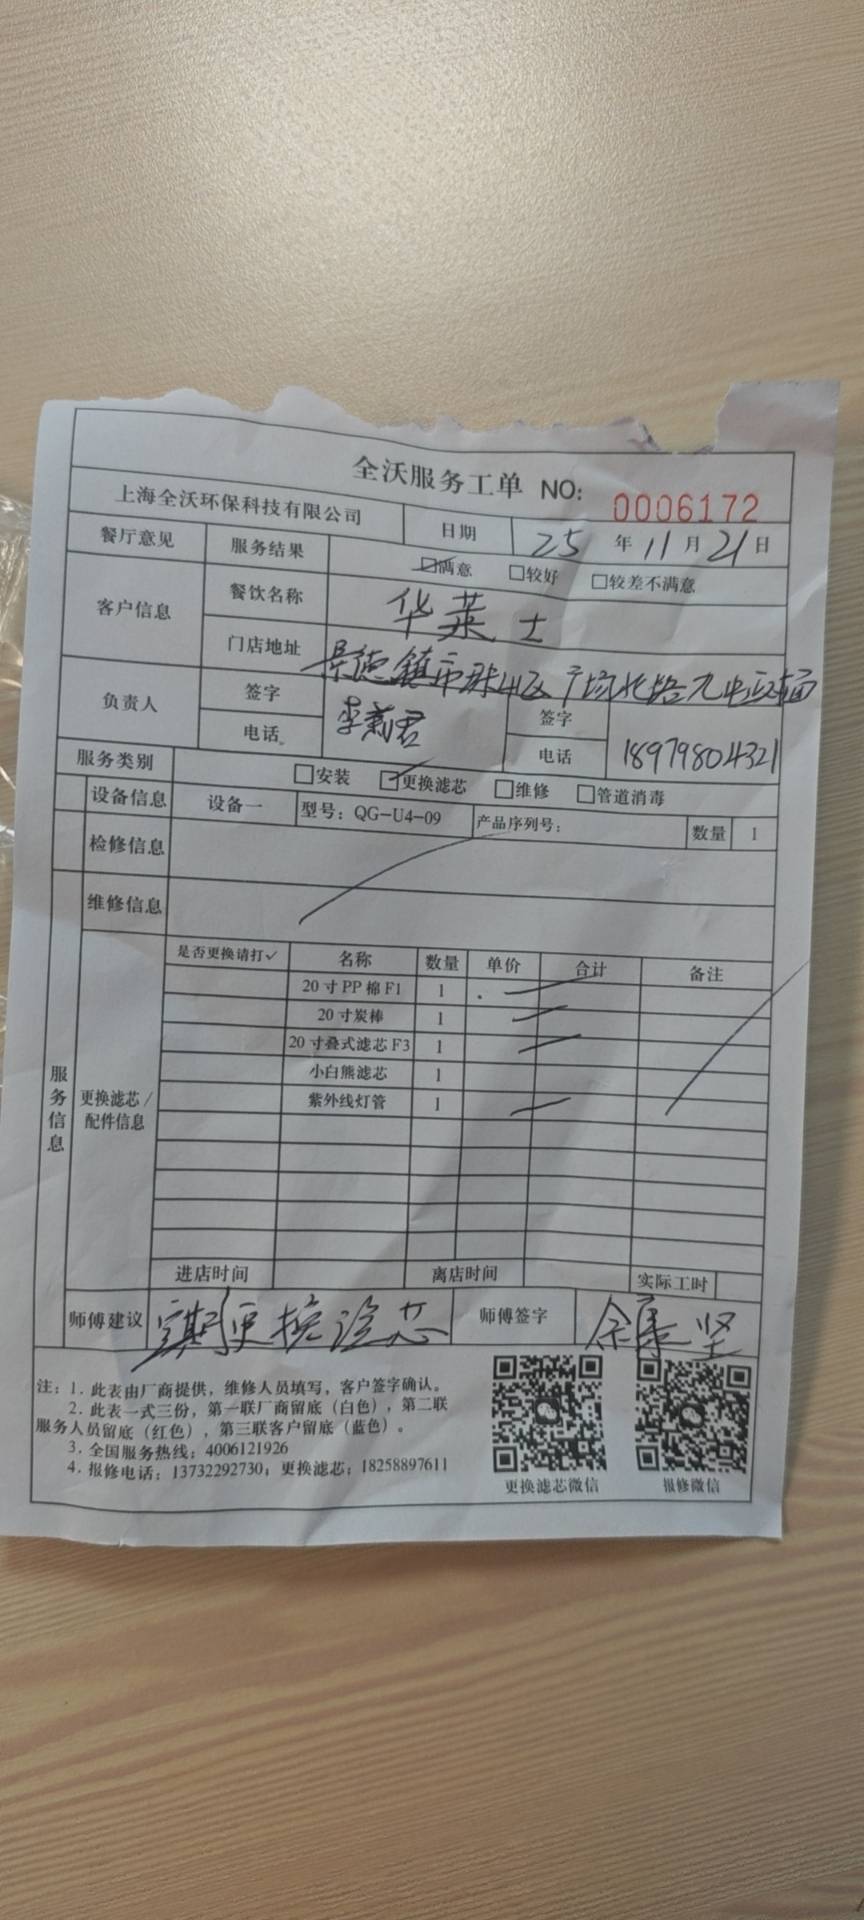 全沃服务工单 NO: 0006172
上海全沃环保科技有限公司 日期 25 年 11 月 21 日
餐厅意见 服务结果 满意 较好 较差不满意
客户信息 餐饮名称 华莱士
门店地址 景德镇市珠山区广场北路九中对面
负责人 签字 李莉君 签字
电话 电话 18979804321
服务类别 安装 更换滤芯 维修 管道消毒
设备信息 设备一 型号：QG-U4-09 产品序列号： 数量 1
检修信息
维修信息
服务信息
更换滤芯/配件信息
是否更换请打✓ 名称 数量 单价 合计 备注
20寸PP棉F1 1
20寸炭棒 1
20寸叠式滤芯F3 1
小白熊滤芯 1
紫外线灯管 1
进店时间 离店时间 实际工时
师傅建议 定期更换滤芯 师傅签字 余 坚
注：1．此表由厂商提供，维修人员填写，客户签字确认。
2．此表一式三份，第一联厂商留底（白色），第二联
服务人员留底（红色），第三联客户留底（蓝色）。
3．全国服务热线：4006121926
4．报修电话：13732292730；更换滤芯：18258897611
更换滤芯微信 报修微信